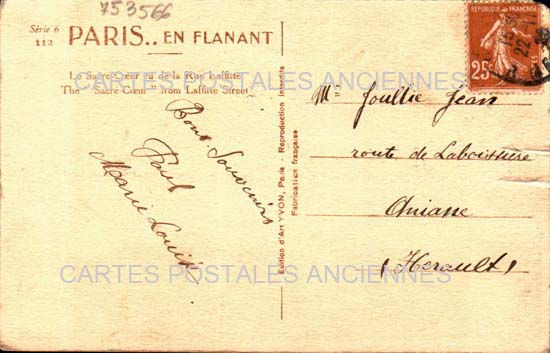 753566
Série 6
112
PARIS.. EN FLANANT
Le Sacré-Cœur vu de la Rue Laffitte
The "Sacré-Cœur" from Laffitte Street
Bons Souvenirs
Paul
Marie Louise
Edition d'Art YVON, Paris - Reproduction Interdite
Fabrication française
RÉPUBLIQUE FRANÇAISE
25c
Joullié Jean
route de Laboissière
Aniane
(Hérault)
CARTES POSTALES ANCIENNES
CARTES POSTALES ANCIENNES